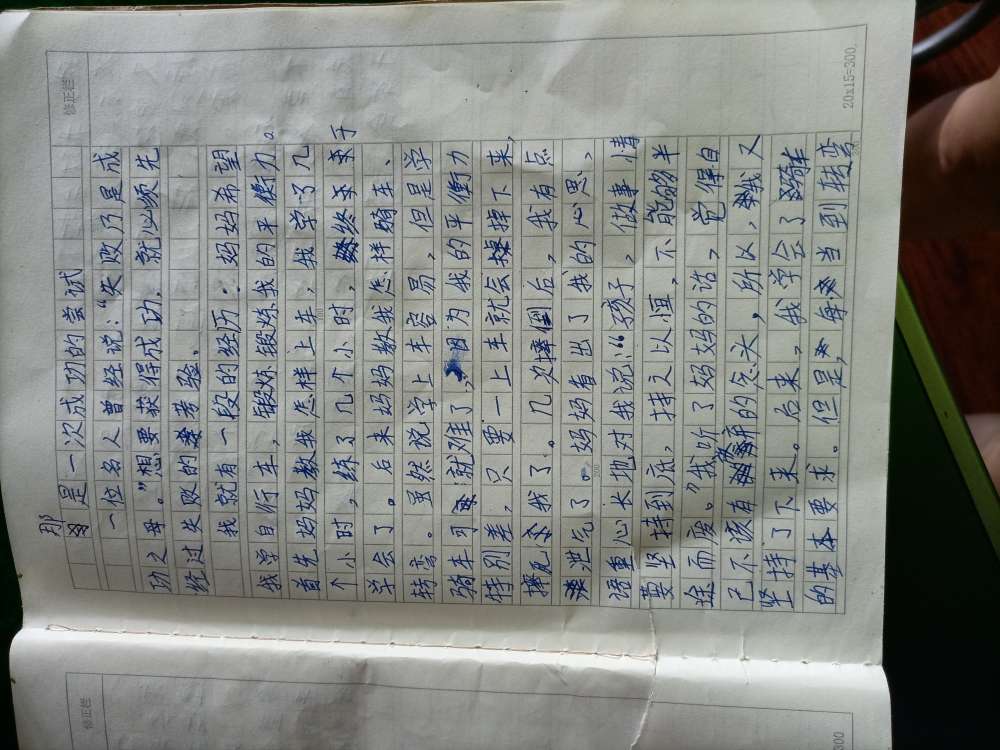 修正栏
那是一次成功的尝试
一位名人曾经说:“失败乃是成
功之母。”想要获得成功,就必须先
经过失败的考验。
我就有一段的经历:妈妈希望
我学自行车,锻炼锻炼我的平衡力。
首先妈妈教我怎样上车,我学了几
个小时,练了几个小时,终于
学会了。后来妈妈教我怎样骑车、
转弯。虽然说学上车容易,但是学
骑车可就难了,因为我的平衡力
特别差,只要一上车就会掉下来,
摔死我了。几次摔倒后,我有点
泄气了。妈妈看出了我的心思,
语重心长地对我说:“孩子,做事情
要坚持到底,持之以恒,不能够半
途而废。”我听了妈妈的话,觉得自
己不该有放弃的念头,所以,我又
坚持了下来。后来,我学会了骑车
的基本要求。但是,每当到转弯
20x15=300
修正栏
300